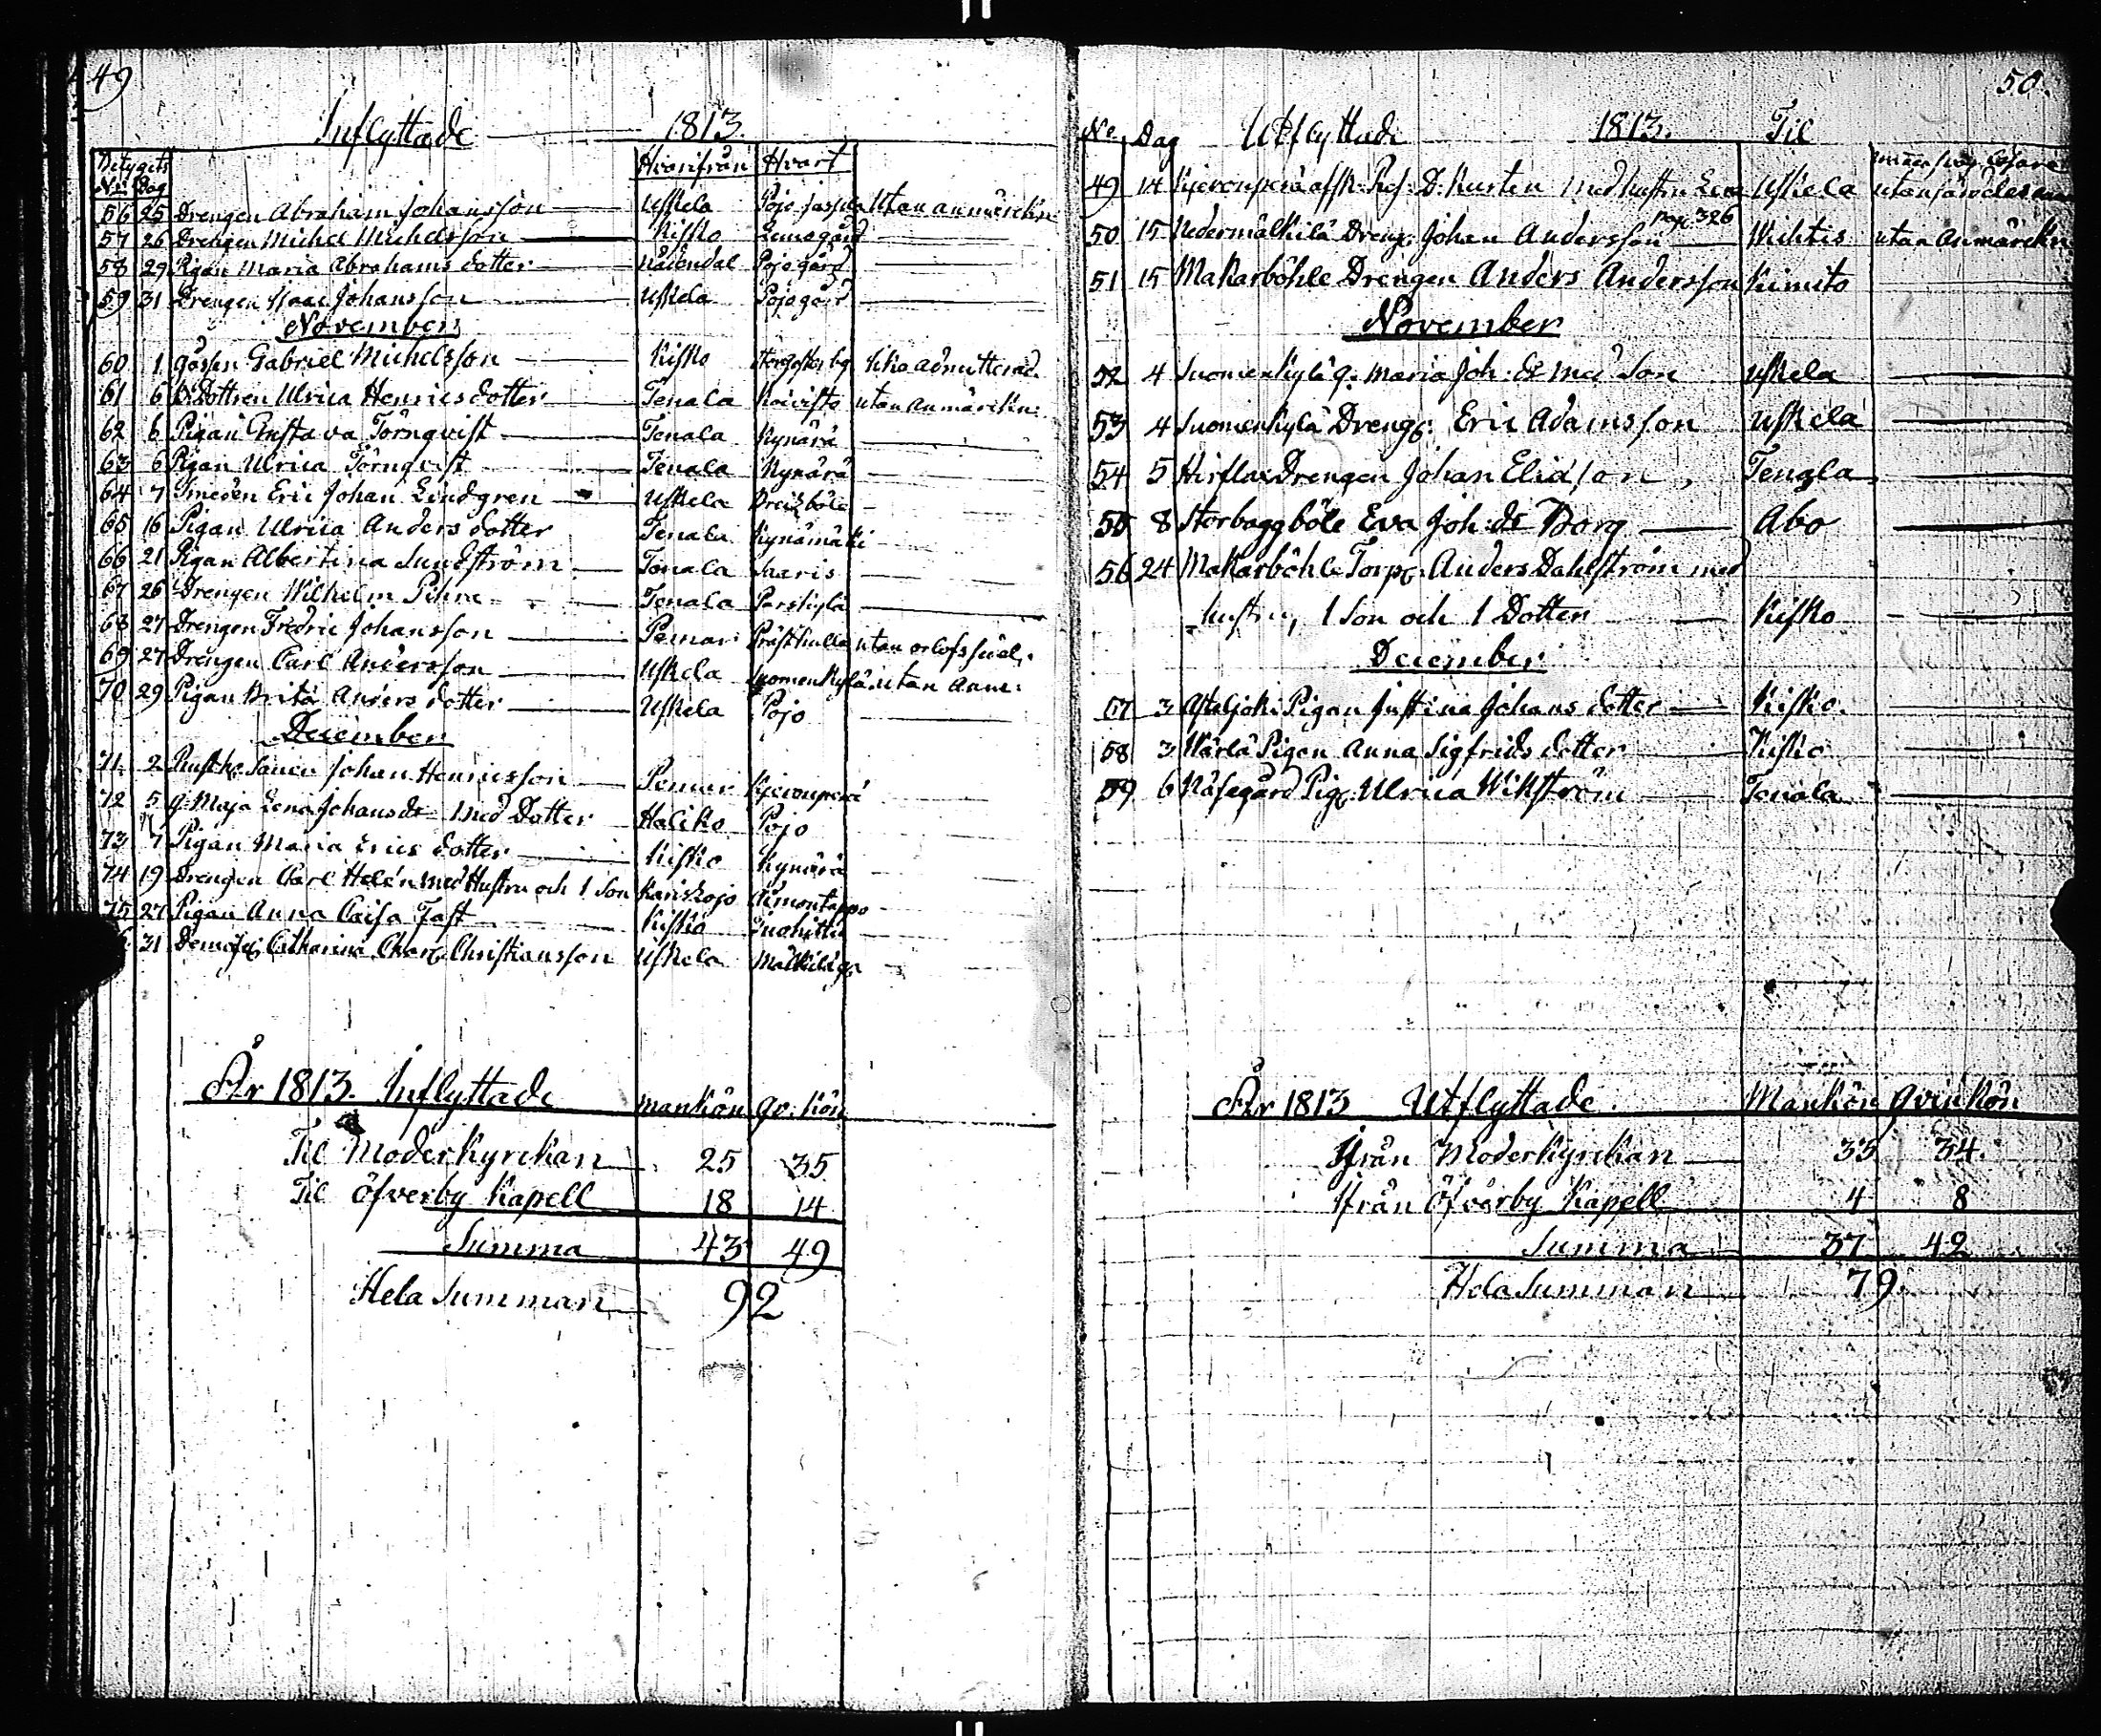 49
Inflyttade 1813.
Betygets Hvarifrån Hvart
No Dag
56 25 Drengen Abraham Johansson Uskela Pojo utan anmärckn
57 26 Drengen Michel Michelsson Kisko Lemogård
58 29 Pigan Maria Abrahams dotter Nådendal Pojogård
59 31 Drengen Isaac Johansson Uskela Pojogård
November
60 1 Gossen Gabriel Michelsson Kisko admitterad
61 6 B:Dottren Ulrica Henricsdotter Tenala Koivisto utan Anmärckn:
62 6 Pigan Gustava Törnqvist Tenala Kynärä
63 6 Pigan Ulrica Törnqvist Tenala Kynärä
64 7 Smeden Eric Johan Lindgren Uskela Breidböle
65 16 Pigan Ulrica Anders dotter Tenala Kynämäki
66 21 Pigan Albertina Sundström Tenala Saaris
67 26 Drengen Wilhelm Tenala Perskylä
68 27 Drengen Fredric Johansson Pemar Prästkulla utan orlofssedel.
69 27 Drengen Carl Andersson Uskela Suomenkylä utan Anm:
70 29 Pigan Brita Anders dotter Uskela Pojo
December
71 2 Johan Henricsson Pemar
72 5 q: Maja Lena Johansdr med Dotter Haliko Pojo
73 7 Pigan Maria Erics dotter Kisko Kynärä
74 19 Drengen Carl Helén med Hustru och 1 Son Karislojo
75 27 Pigan Anna Caisa Fast Kisko
31 Catharina Char: Christiansson Uskela
År 1813. Inflyttade mankön qv: kön
Til Moderkyrckan 25 35
Til Öfverby Kapell 18 14
Summa 43 49
Hela Summan 92
50.
No Dag Utflyttade 1813. Til
49 14 D: Kurtén med hustru Uskela
pag: 326
50 15 Nedermälkilä Dreng: Johan Andersson Wichtis utan Anmärckn
51 15 Makarböhle Drengen Anders Andersson Kimito
November
52 4 Suomenkylä q: Maria Joh: dr med Son Uskela
53 4 Suomenkylä Dreng: Eric Adamsson Uskela
54 5 Drengen Johan Eliasson, Tenala
55 8 Storbaggböle Eva Joh: dr Borg Åbo
56 24 Makarböhle Torp: Anders Dahlström med
hustru, 1 Son och 1 Dotter Kisko
December
57 3 Pigan Justina Johans dotter Kisko.
58 3 Wärlä Pigan Anna Sigfrids dotter Kisko
59 6 Näsegård Pig: Ulrica Wikström Tenala
År 1813 Utflyttade. Mankön Qvinkön
Ifrån Moderkyrckan 33 34.
Ifrån Öfverby Kapell 4 8
Summa 37 42
Hela Summan 79.